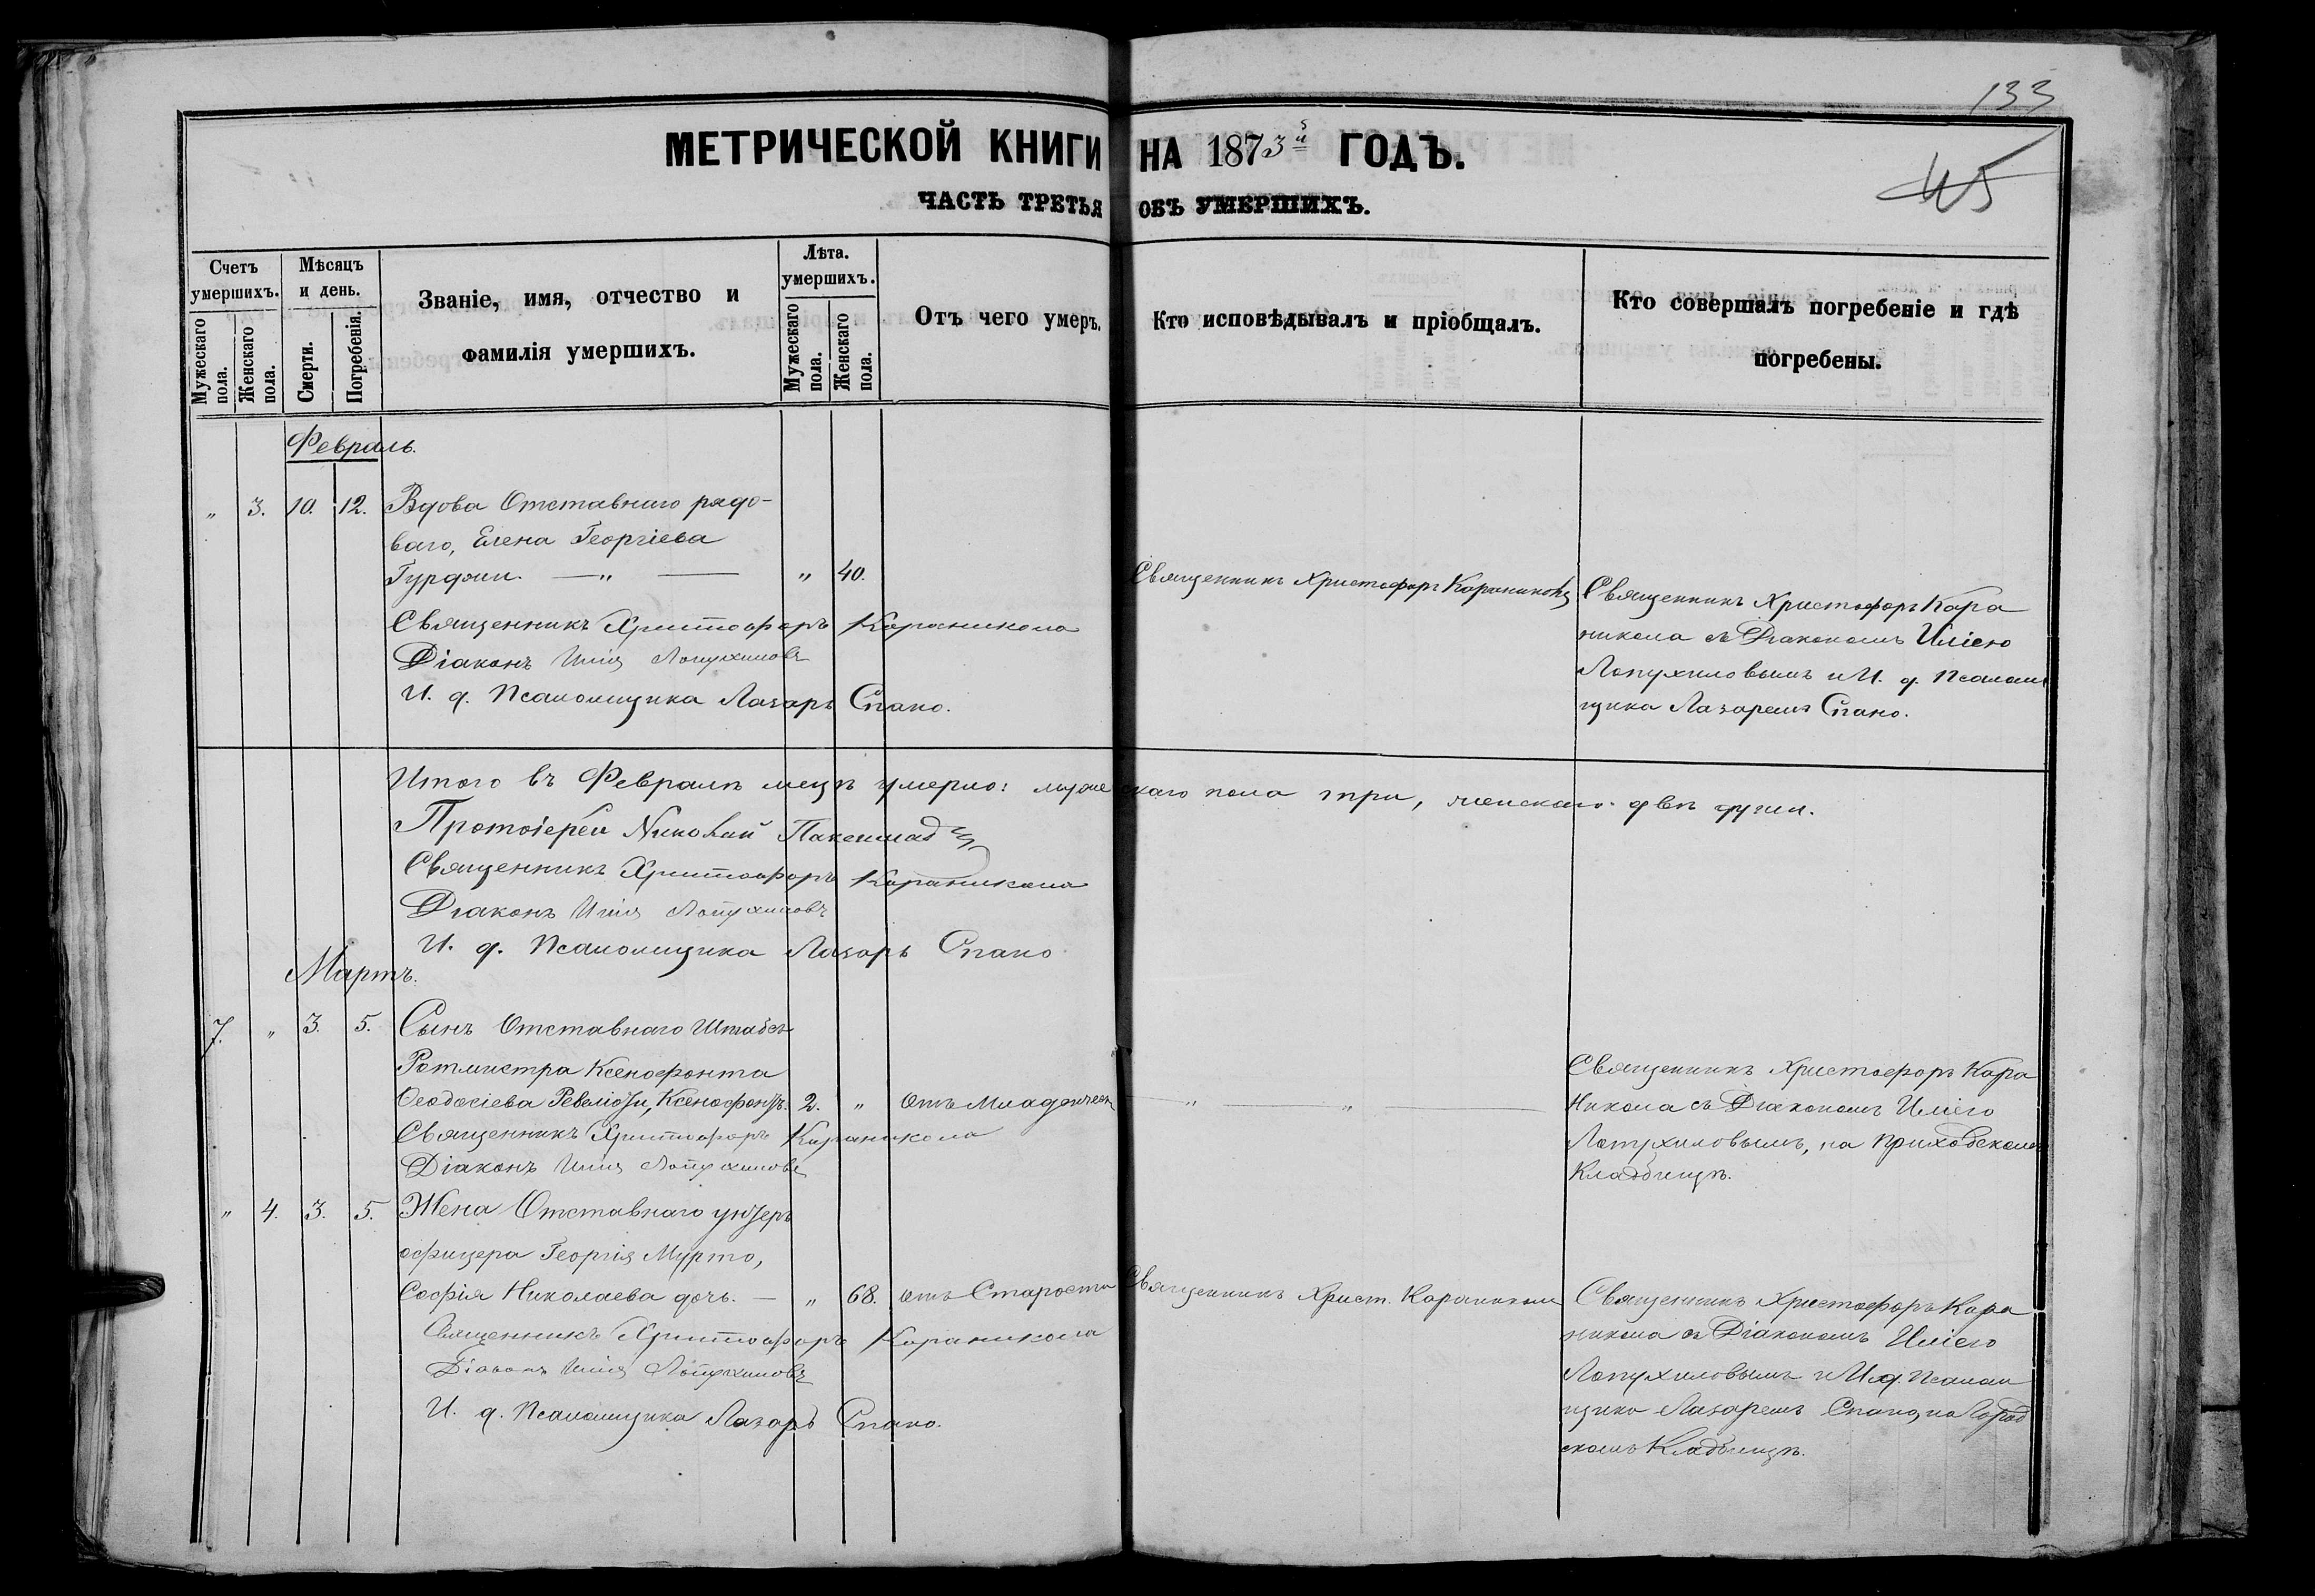 133
МЕТРИЧЕСКОЙ КНИГИ НА 1873й ГОДЪ.
ЧАСТЬ ТРЕТЬЯ ОБЪ УМЕРШИХЪ.
Счетъ умершихъ.
Мужескаго пола.
Женскаго пола.
Мѣсяцъ и день.
Смерти.
Погребенія.
Званіе, имя, отчество и
фамилія умершихъ.
Лѣта. умершихъ.
Мужескаго пола.
Женскаго пола.
Отъ чего умеръ.
Кто исповѣдывалъ и пріобщалъ.
Кто совершалъ погребеніе и гдѣ
погребены.
Февраль.
" 3. 10. 12. Вдова Отставнаго рядо-
ваго, Елена Георгіева
— " — " 40.
Священникъ Христофоръ Караникола
Діаконъ Илія Лопухиловъ
И. д. Псаломщика Лазарь Спано.
Священникъ Христофоръ Караникола
Священникъ Христофоръ Кара
никола съ Діакономъ Иліею
Лопухиловымъ и И. д. Псалом
щика Лазаремъ Спано.
Итого въ Февралѣ мцѣ умерло: мужескаго пола три, женскаго двѣ души.
Протоіерей Николай
Священникъ Христофоръ Караникола
Діаконъ Илія Лопухиловъ
И. д. Псаломщика Лазарь Спано
Мартъ.
7. " 3. 5. Сынъ Отставнаго Штабсъ
Ротмистра Ксенофонта
Ѳеодосіева Ревеліоти, Ксенофонтъ. 2. " отъ Младенческ
Священникъ Христофоръ Караникола
Діаконъ Илія Лопухиловъ
" "
Священникъ Христофоръ Кара
никола съ Діакономъ Иліею
Лопухиловымъ, на приходскомъ
Кладбищѣ.
" 4. 3. 5. Жена Отставнаго унтеръ
офицера Георгія Мурто,
Софія Николаева дочь. — " 68. отъ Старости
Священникъ Христофоръ Караникола
Діаконъ Илія Лопухиловъ
И. д. Псаломщика Лазарь Спано.
Священникъ Христ. Караникола
Священникъ Христофоръ Кара
никола съ Діакономъ Иліею
Лопухиловымъ и И. д. Псалом
щика Лазаремъ Спано, на Город
скомъ Кладбищѣ.